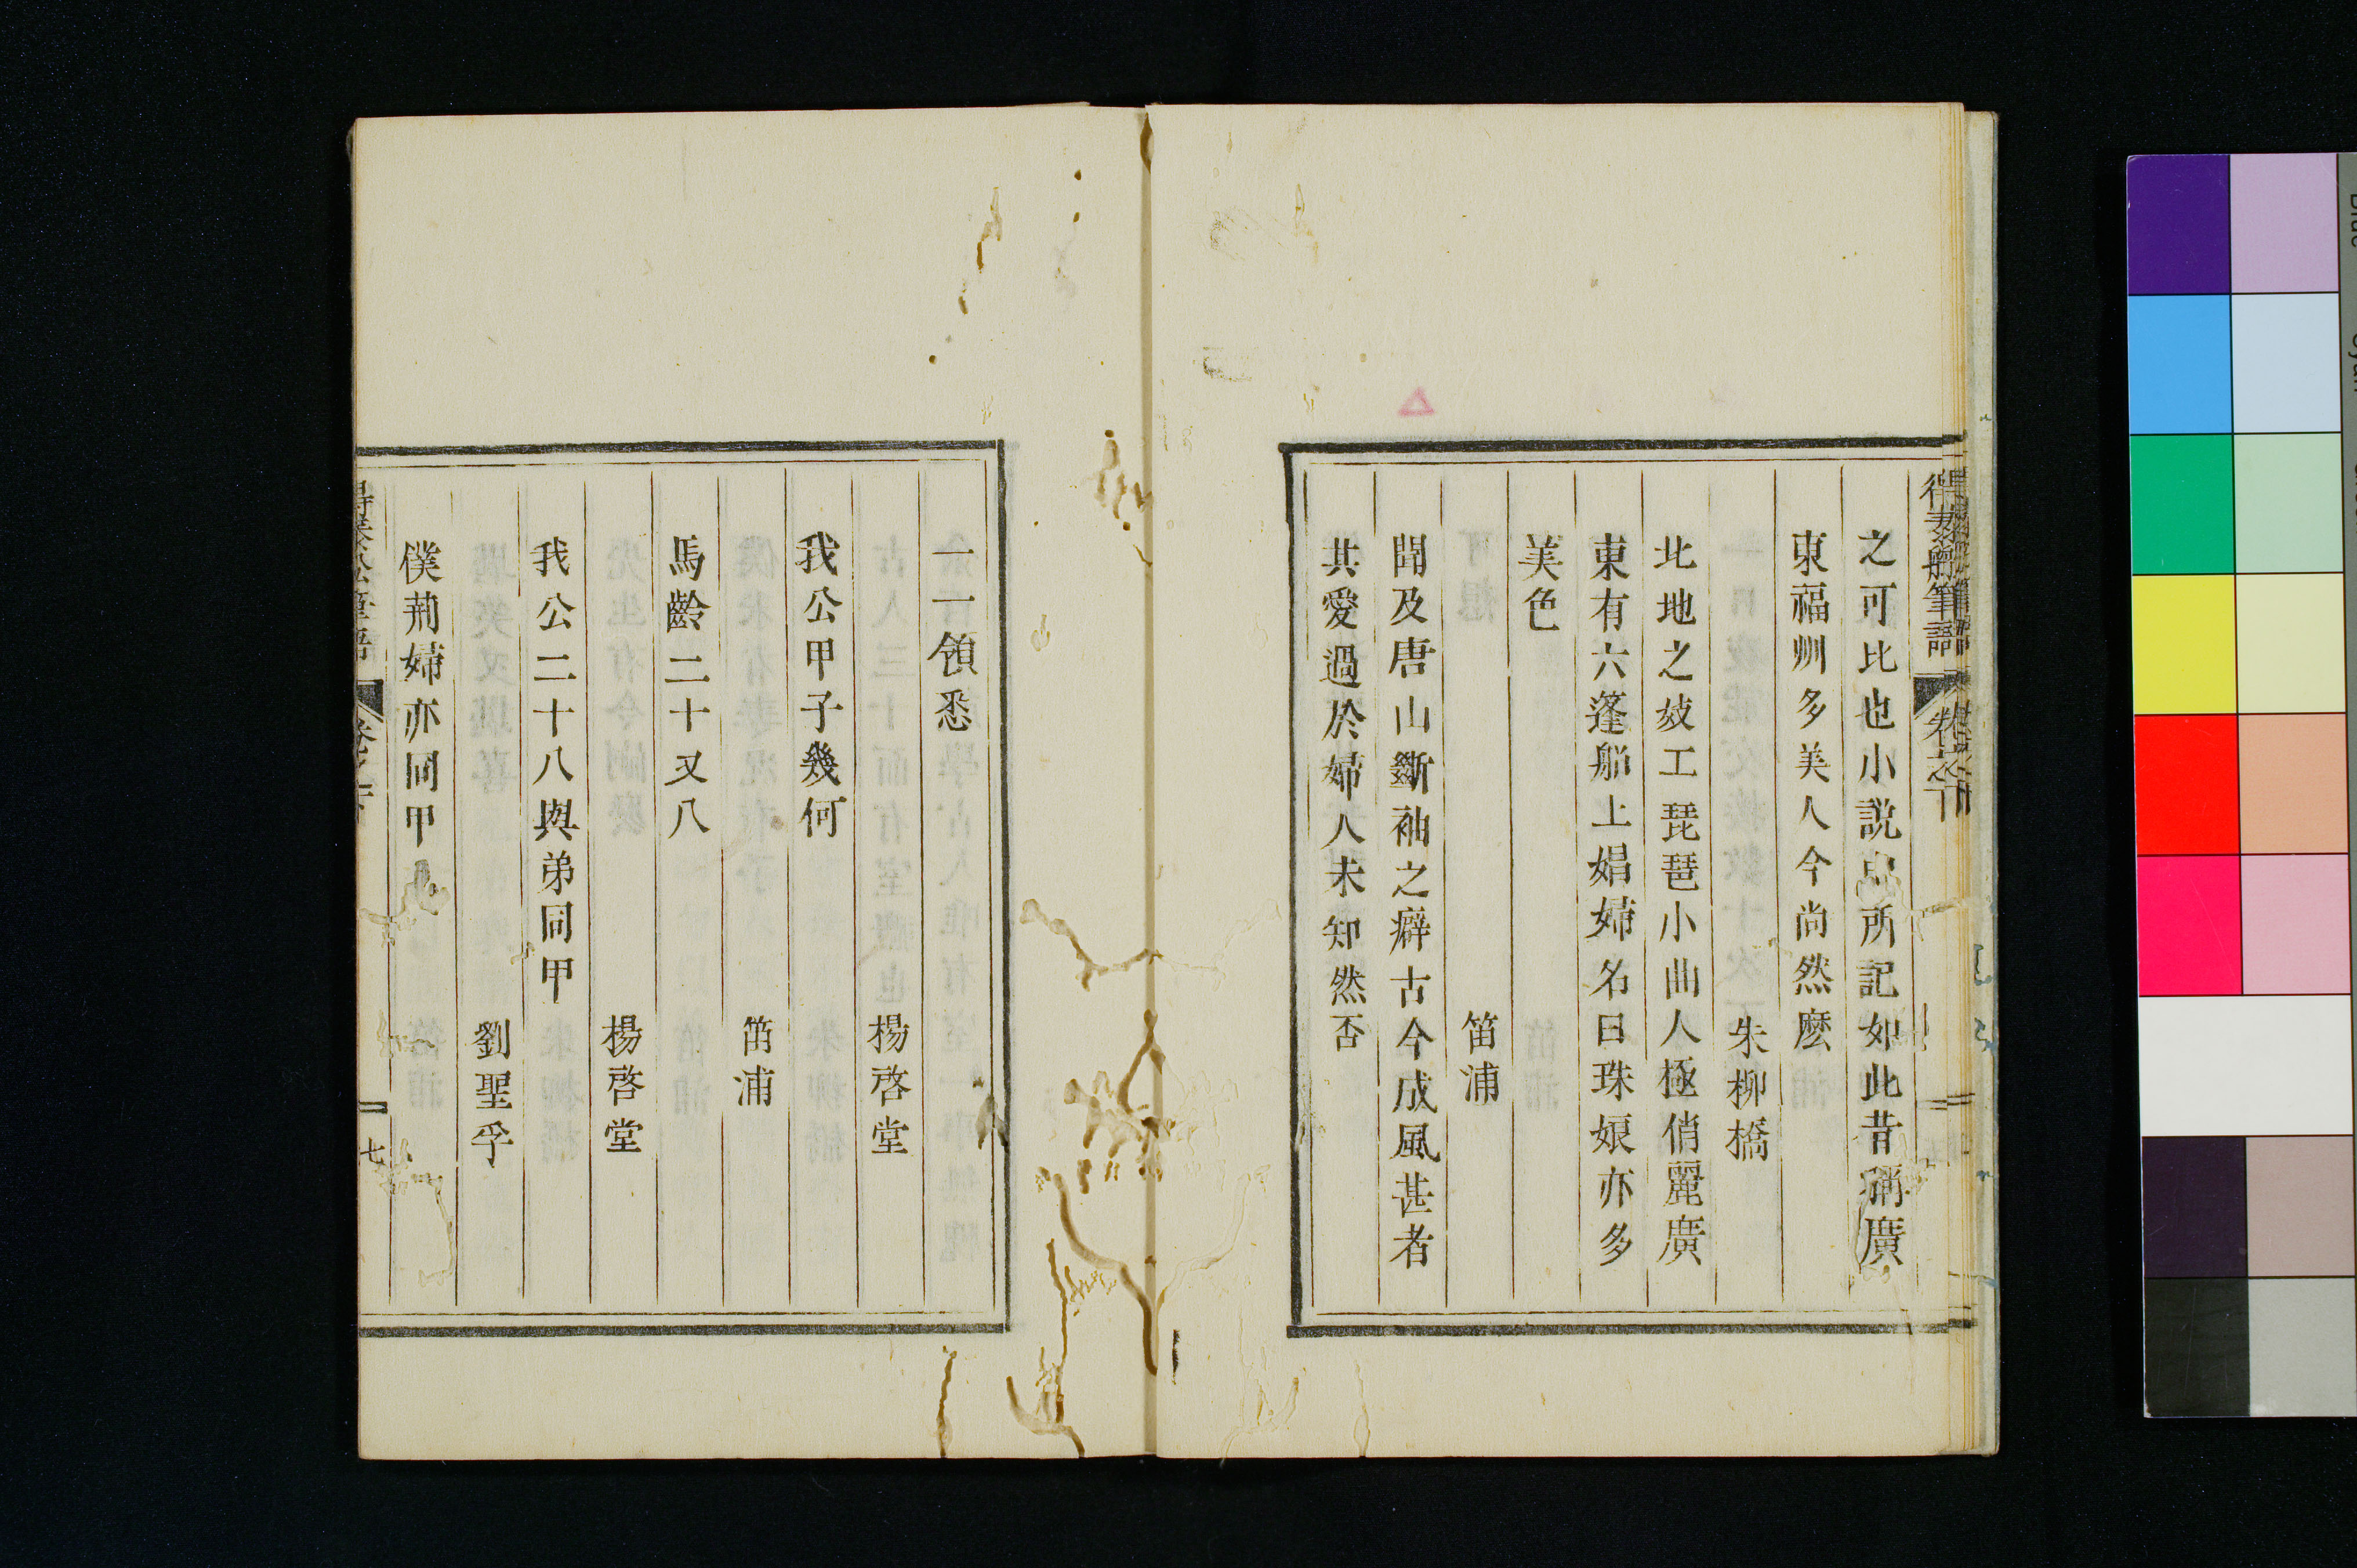 得泰船筆語 卷之下
之可比也小說中所記如此昔稱廣
東福州多美人今尚然麽
朱柳橋
北地之妓工琵琶小曲人極俏麗廣
東有六蓬船上娼婦名曰珠娘亦多
美色
笛浦
聞及唐山斷袖之癖古今成風甚者
其愛過於婦人未知然否
楊啓堂
一一領悉
笛浦
我公甲子幾何
楊啓堂
馬齡二十又八
劉聖孚
我公二十八與弟同甲
僕荊婦亦同甲
七